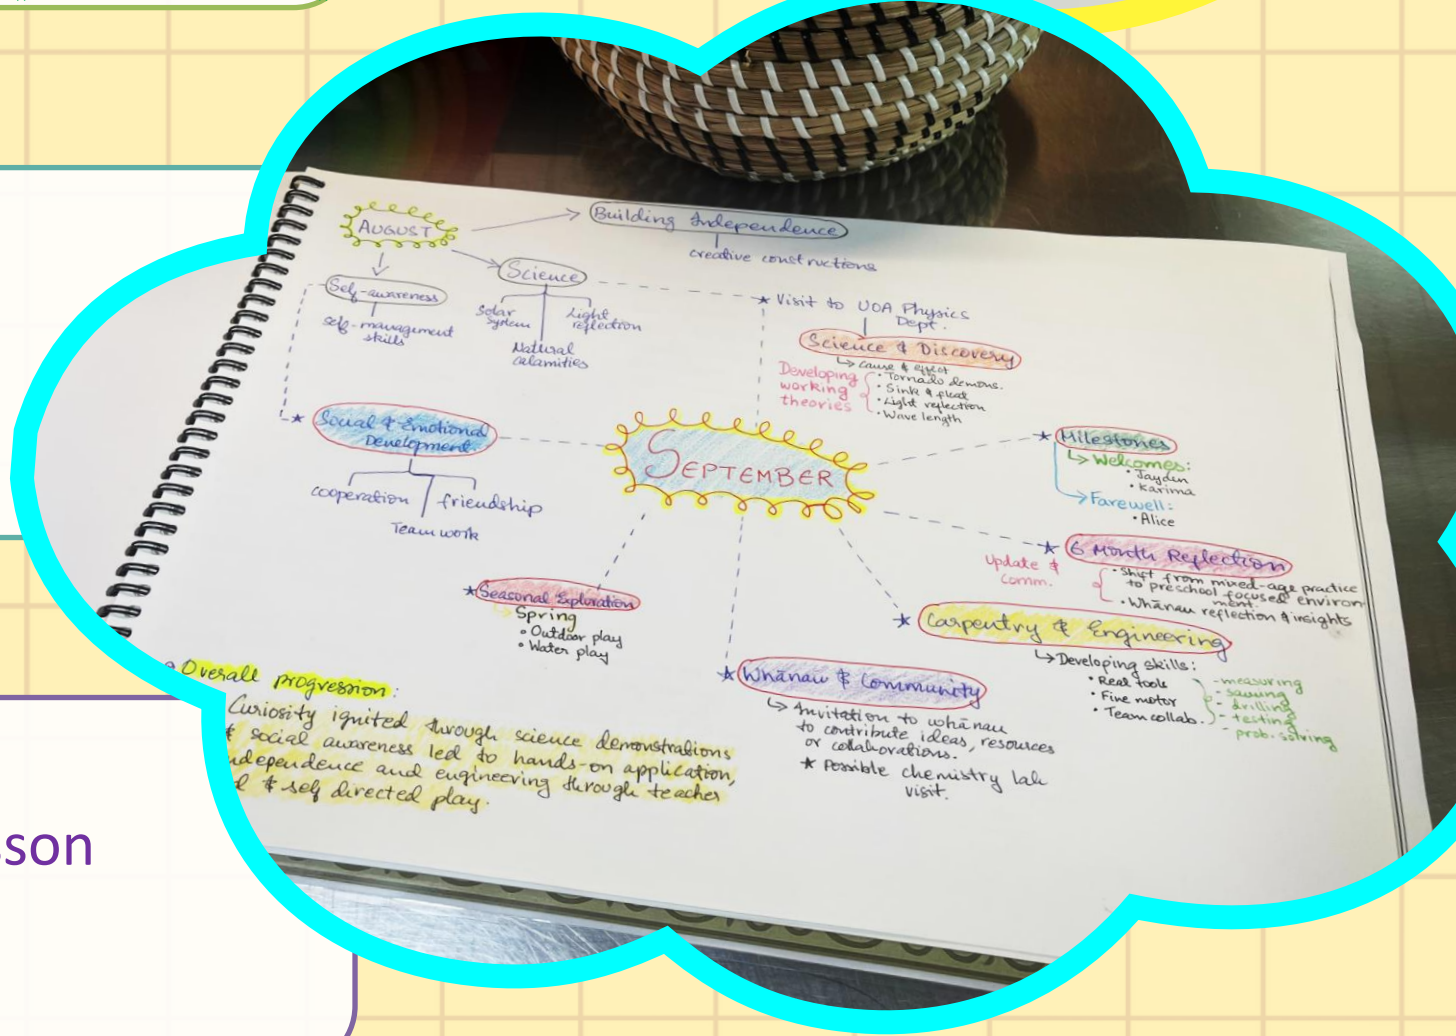 AUGUST
Building Independence
creative constructions
Science
Solar
System
Light
reflection
Natural
calamities
Self-awareness
self-management
skills
Visit to UOA Physics
Dept.
Science & Discovery
cause & effect
Developing
working
theories
• Tornado demons.
• Sink & float
• Light reflection
• Wave length
Social & Emotional
Development
cooperation
friendship
Team work
SEPTEMBER
Milestones
Welcomes:
• Jayden
• Karima
Farewell:
• Alice
6 Month Reflection
Update &
Comm.
• Shift from mixed-age practice
to preschool focused environ
ment.
• Whānau reflection & insights
Seasonal Exploration
Spring
• Outdoor play
• Water play
Carpentry & Engineering
Developing skills:
• Real tools
• Fine motor
• Team collab.
- measuring
- sawing
- drilling
- testing
- prob. solving
Whānau & Community
Invitation to whānau
to contribute ideas, resources
or collaborations.
* Possible chemistry lab
visit.
Overall progression:
Curiosity ignited through science demonstrations
& social awareness led to hands-on application,
independence and engineering through teacher
& self directed play.
sson